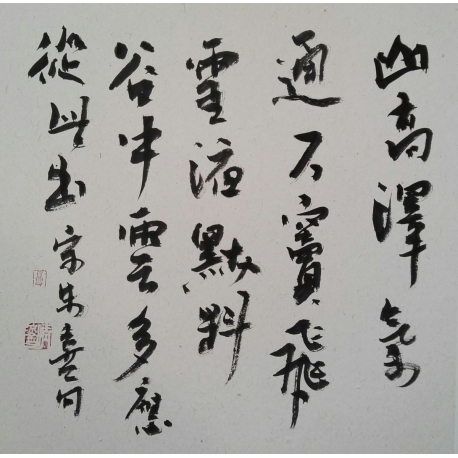 山高澤氣
通石竇飛
靈液默料
谷中雲多應
從此出 宋朱熹句